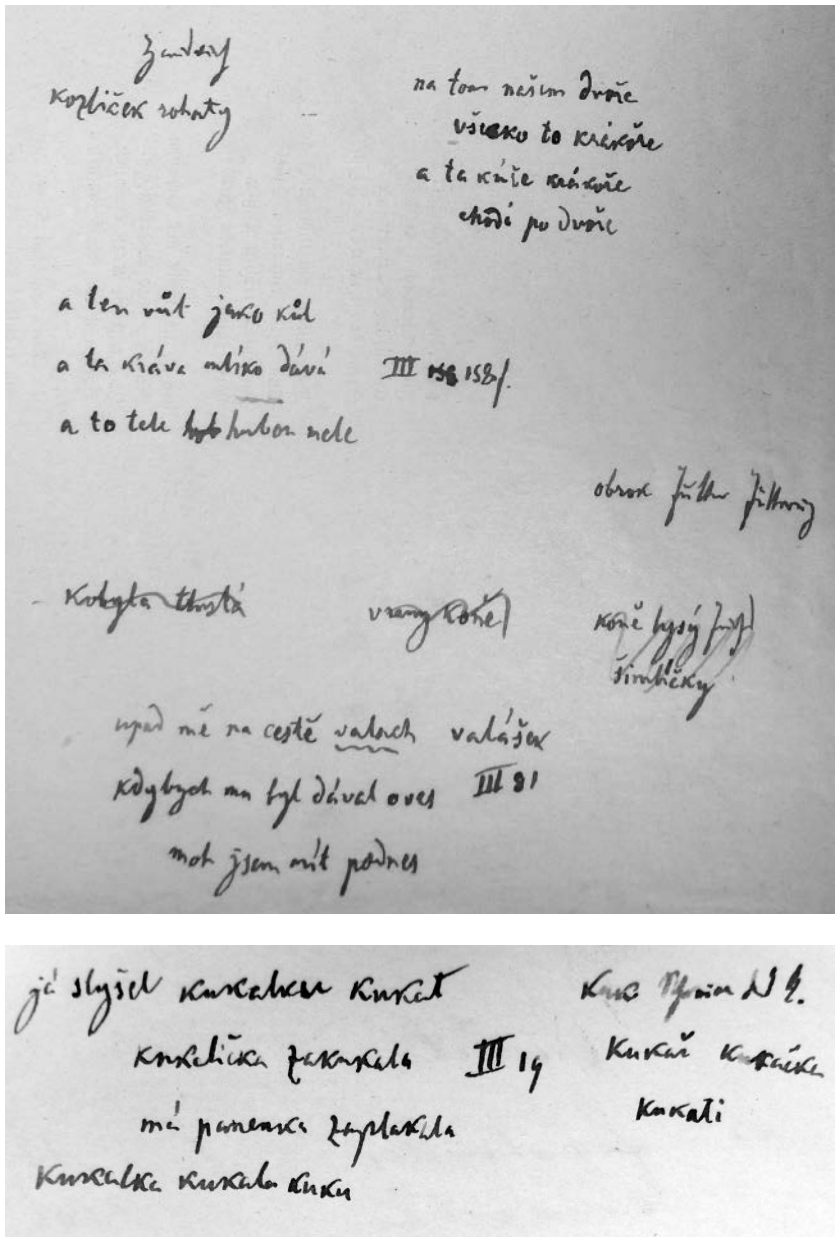 kozliček rohatý
na tom našem dvoře
všecko to krákoře
a ta káče krákoře
chodí po dvoře
a ten vůl jako kůl
a ta kráva mlíko dává III 158 158/.
a to tele hub hubou mele
obrok
kobyla tlustá vrany koně
koně lysý
šimličky
upad mě na cestě valach valášek
kdybych mu byl dával oves III 81
moh jsem mít podnes
já slyšel kukalku kukat
kukalička zakukala III 19
má panenka zaplakala
kukalka kukala kuku
kuk
kukač kukačka
kukati